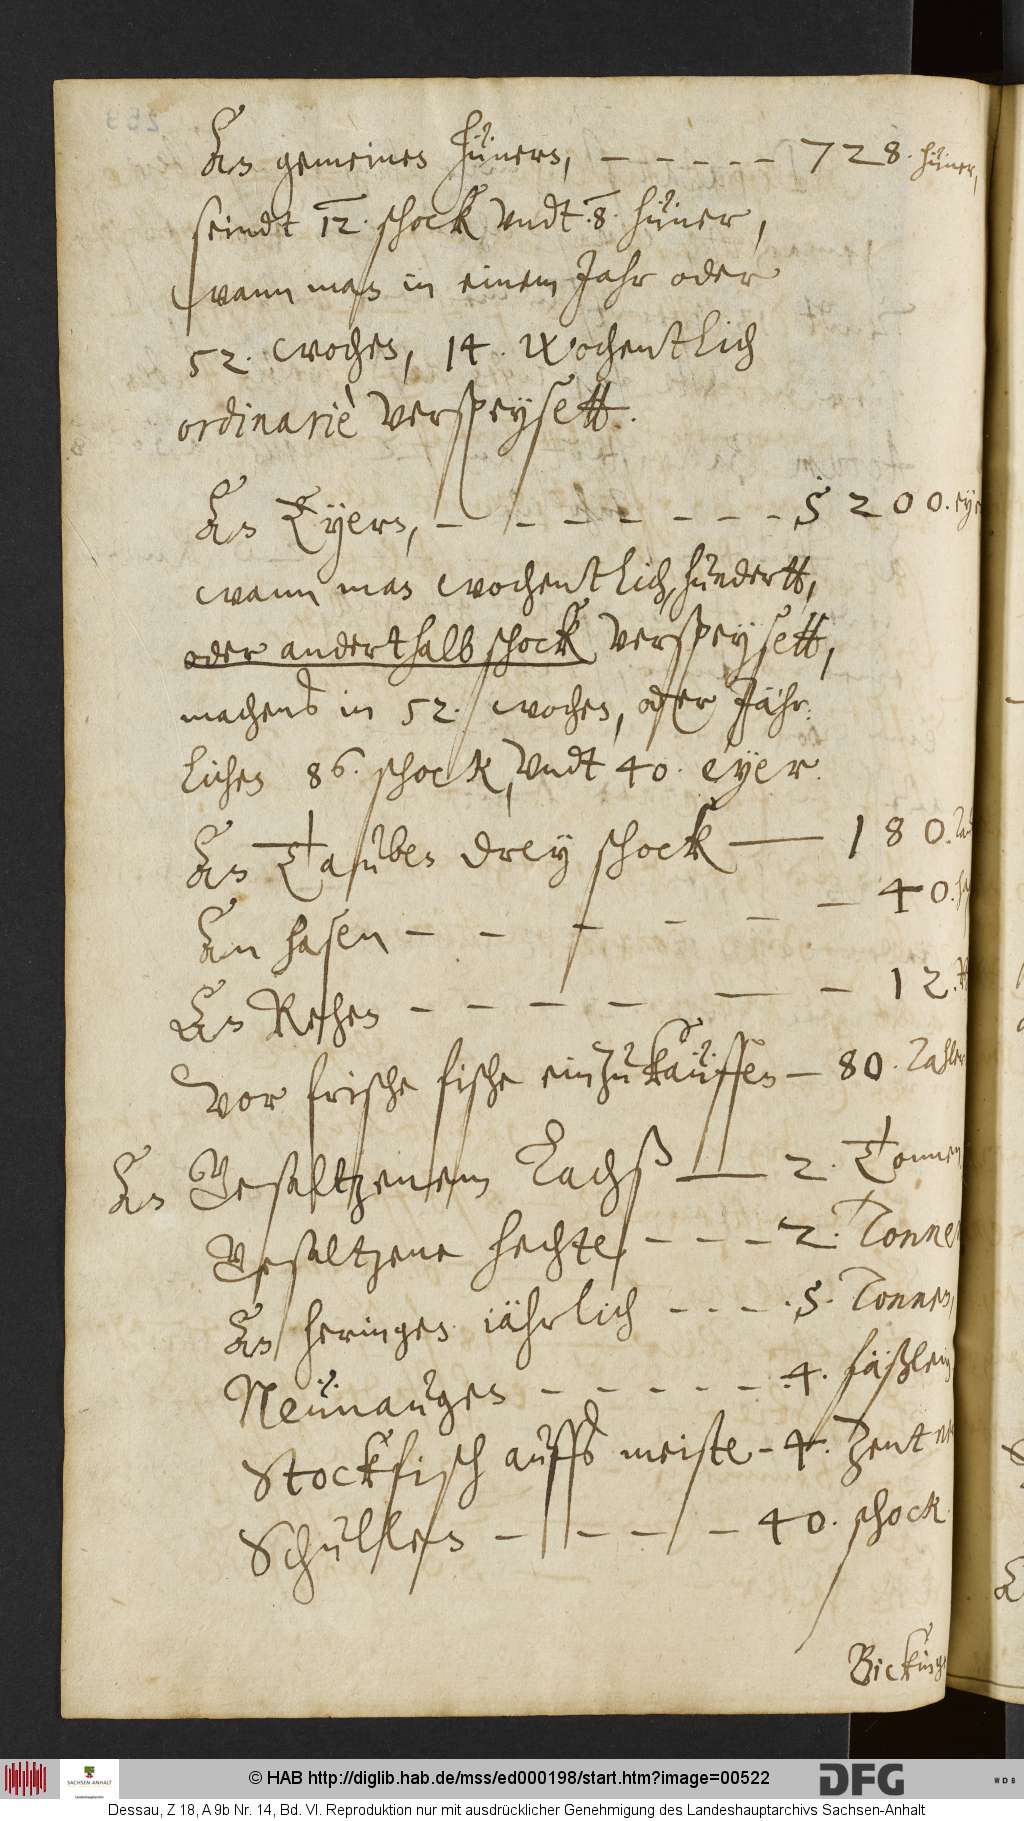 An gemeinen hünern, – – – – – 728. hüner,
seindt 12. schock vndt .8. hüner,
wann man in einem Jahr oder
52. wochen, 14. wochentlich
ordinariè verspeysett.
An Eÿern, – – – – – – – 5200. eÿer
wann man wochentlich, hündertt,
oder anderthalb schock verspeysett,
machens in 52. wochen, oder Jähr:
lichen 86. schock, vndt 40. eÿer.
An Tauben drey schock — 180.
An hasen – – – – – – 40.
An Rehen – – – – — – 12.
Vor frische fische einzukäuffen – 80. Tahler
An Gesaltzenem Lachß — 2. Tonnen
Gesaltzene hechte, – – – 2. Tonnen
An heringen jährlich – – – .5. Tonnen,
Neünaugen – – – – – .4. fäßlein
Stockfisch auffs meiste – 4. Zentner
Schullen – – – – 40. schock
Bickinge
© HAB http://diglib.hab.de/mss/ed000198/start.htm?image=00522
SACHSEN-ANHALT
DFG
WDB
Dessau, Z 18, A 9b Nr. 14, Bd. VI. Reproduktion nur mit ausdrücklicher Genehmigung des Landeshauptarchivs Sachsen-Anhalt